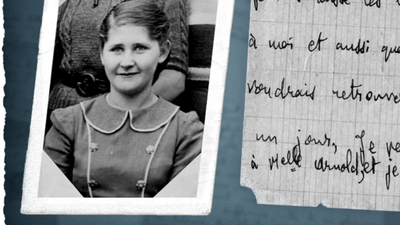 les
à moi et aussi
voudrais retrouve
un jour, Je
à Melle Arnold, et je